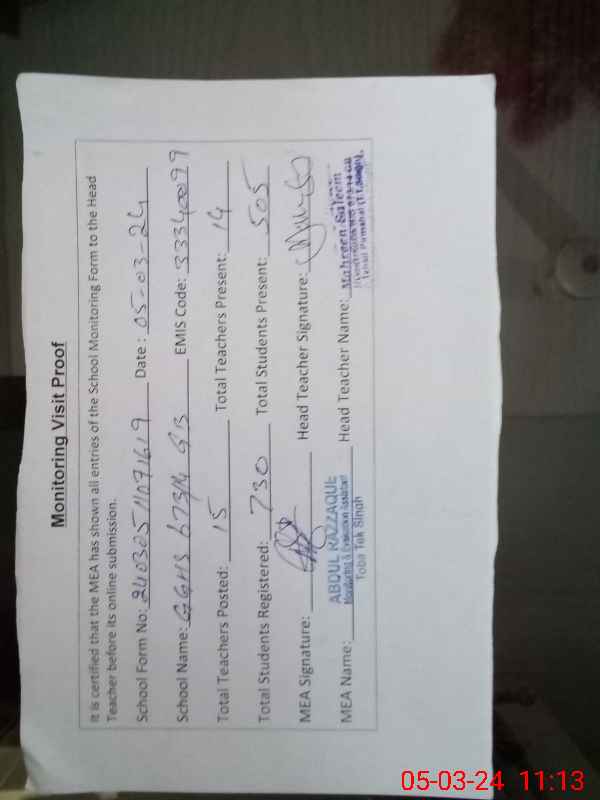 Monitoring Visit Proof
It is certified that the MEA has shown all entries of the School Monitoring Form to the Head
Teacher before its online submission.
School Form No: 24030511071619 Date: 05-03-24
School Name: GGHS 673/14 GB EMIS Code: 33340099
Total Teachers Posted: 15 Total Teachers Present: 14
Total Students Registered: 730 Total Students Present: 505
MEA Signature: Head Teacher Signature:
MEA Name: ABDUL RAZZAQUE Head Teacher Name: Mahreen Saleem
Monitoring & Evaluation Assistant
Toba Tek Singh
05-03-24 11:13